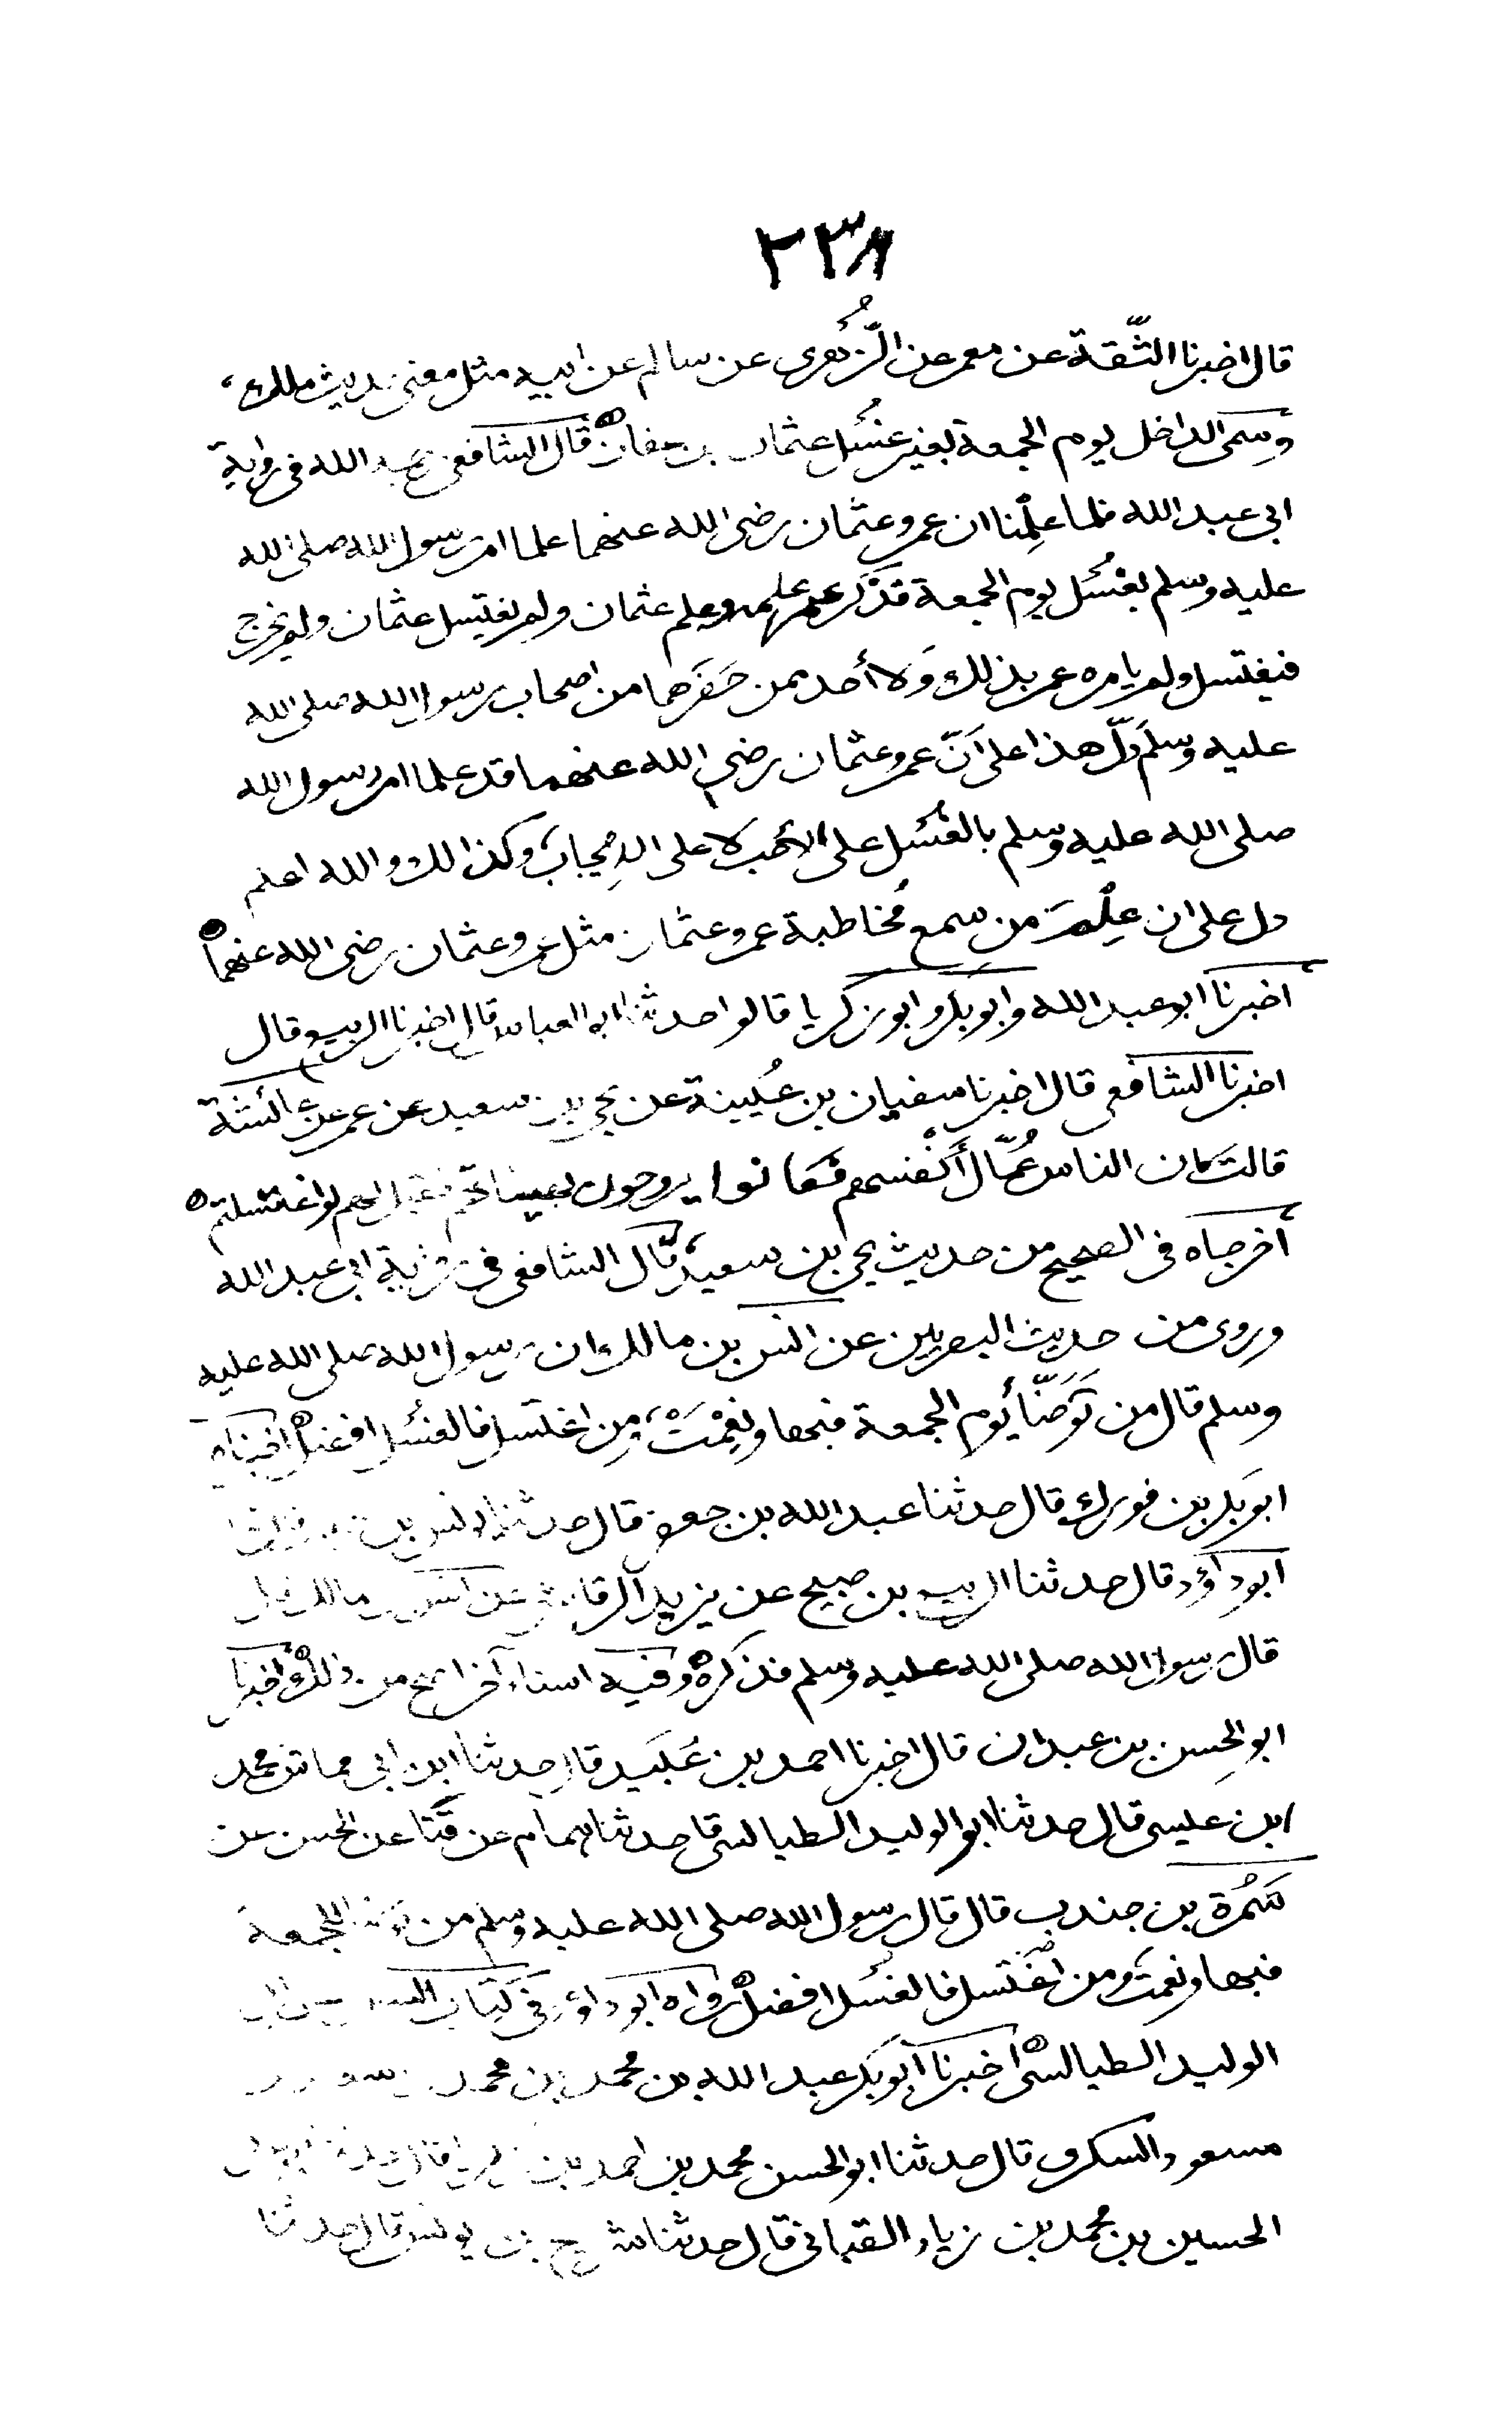 ٢٣٨
قال اخبرنا الثّقة عن معمر عن الزُّهرى عن سالم عن ابيه مثل معنى حديث مالك،
وسمى الداخل يوم الجمعة بغير غُسُل عثمان بن عفان قال الشافعى رحمه الله فى رواية
ابى عبد الله فلما علِمْنا ان عمر وعثمان رضى الله عنهما علما امر رسول الله صلى الله
عليه وسلم بغُسُل يوم الجمعة فذَكَر عمر علمه وعلم عثمان ولم يغتسل عثمان ولم يخرج
فيغتسل ولم يامره عمر بذلك وَلا أحد ممن حَضَرهما من اصحاب رسول الله صلى الله
عليه وسلم دَلّ هذا على أنّ عمر وعثمان رضى الله عنهما قد علما امر رسول الله
صلى الله عليه وسلم بالغُسُل على الأحب لا على الإيجاب، وكذالك والله اعلم
دل على ان عِلْمَ من سمع مُخاطبة عمر وعثمان مثل عمر وعثمان رضى الله عنهما
اخبرنا ابو عبد الله وابو بكر وابو زكريا قالوا حدثنا ابو العباس قال اخبرنا الربيع قال
اخبرنا الشافعى قال اخبرنا سفيان بن عُيينة عن يحيى بن سعيد عن عمرة عن عائشة
قالت كان الناس عُمّال أَنْفسهم فكانوا يروحون بهيئاتهم فقيل لهم لو اغتسلتم
أخرجاه فى الصحيح من حديث يحيى بن سعيد، قال الشافعى فى رواية ابى عبد الله
وروى من حديث البصريين عن انس بن مالك ان رسول الله صلى الله عليه
وسلم قال من تَوَضّأ يوم الجمعة فبها ونِعْمَتْ، ومن اغتسل فالغُسُل افضل اخبرناه
ابو بكر بن فورك قال حدثنا عبد الله بن جعفر قال حدثنا يونس بن حبيب قال حدثنا
ابو داؤد قال حدثنا الربيع بن صبيح عن يزيد الرقاشى عن انس بن مالك قال
قال رسول الله صلى الله عليه وسلم فذكره وفيه اسناد آخر اصح من ذلك واخبرنا
ابو الحسن بن عبدان قال اخبرنا احمد بن عُبَيد قال حدثنا ابن ابى قماش محمد
ابن عيسى قال حدثنا ابو الوليد الطيالسى قا حدثنا همام عن قتا عن الحسن عن
سَمُرة بن جندب قال قال رسول الله صلى الله عليه وسلم من توضأ للجمعة
فبها ونعمت ومن اغتسل فالغسُل افضل رواه ابو داؤد فى كتاب السنن عن ابى
الوليد الطيالسى اخبرنا ابو بكر عبد الله بن محمد بن محمد بن
مسعود السكرى قال حدثنا ابو الحسن محمد بن احمد بن قال حدثنا
الحسين بن محمد بن زياد القبانى قال حدثنا شريح بن يونس قال حدثنا